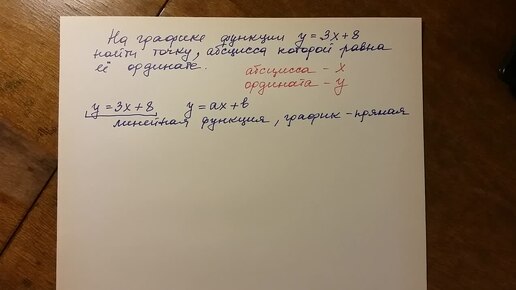 На графике функции y = 3x + 8
найти точку, абсцисса которой равна
её ординате.
абсцисса - x
ордината - y
y = 3x + 8, y = ax + b
линейная функция, график - прямая